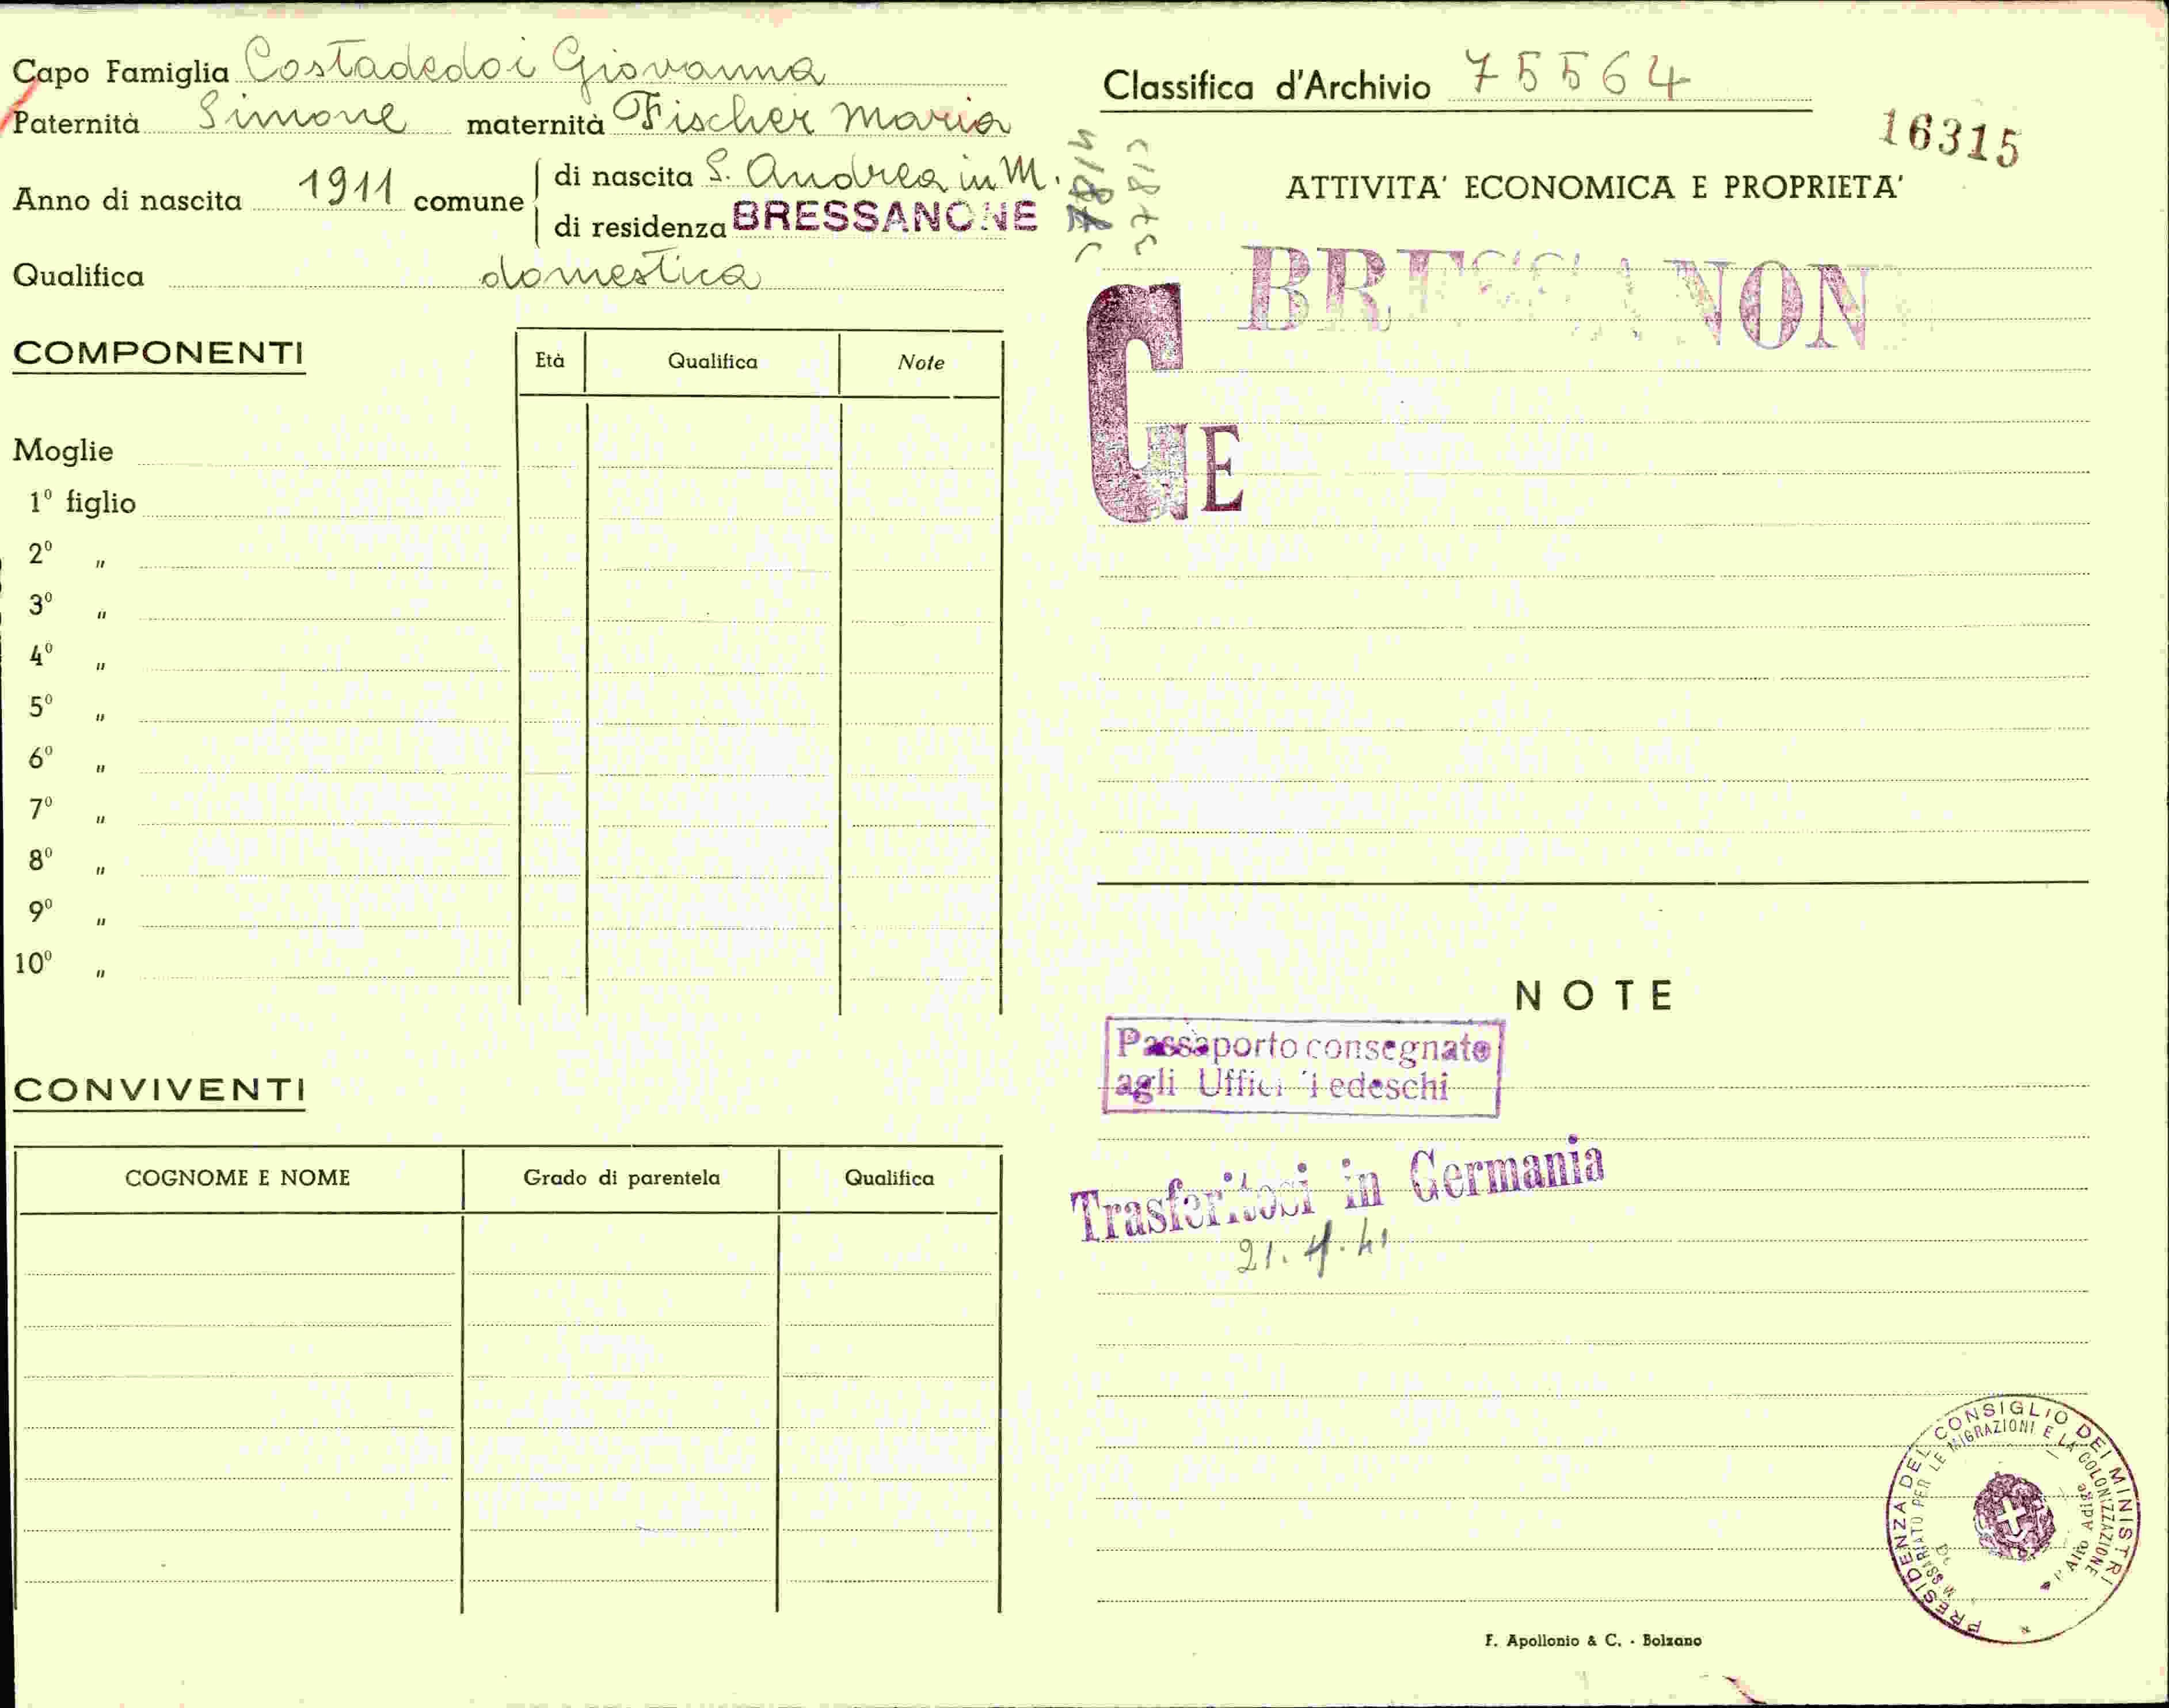 Capo Famiglia Costadedoi Giovanna
Paternità Simone maternità Fischer Maria
Anno di nascita 1911 comune
di nascita S. Andrea in M.
di residenza BRESSANONE
Qualifica domestica
COMPONENTI
Età Qualifica Note
Moglie
1º figlio
2º "
3º "
4º "
5º "
6º "
7º "
8º "
9º "
10º "
CONVIVENTI
COGNOME E NOME Grado di parentela Qualifica
Classifica d'Archivio 75564
16315
ATTIVITA' ECONOMICA E PROPRIETA'
BRESSANON
G
E
NOTE
Passaporto consegnato
agli Uffici Tedeschi
Trasferitosi in Germania
21.4.41
PRESIDENZA DEL CONSIGLIO DEI MINISTRI
PER LE MIGRAZIONI E LA COLONIZZAZIONE
Alto Adige
F. Apollonio & C. - Bolzano